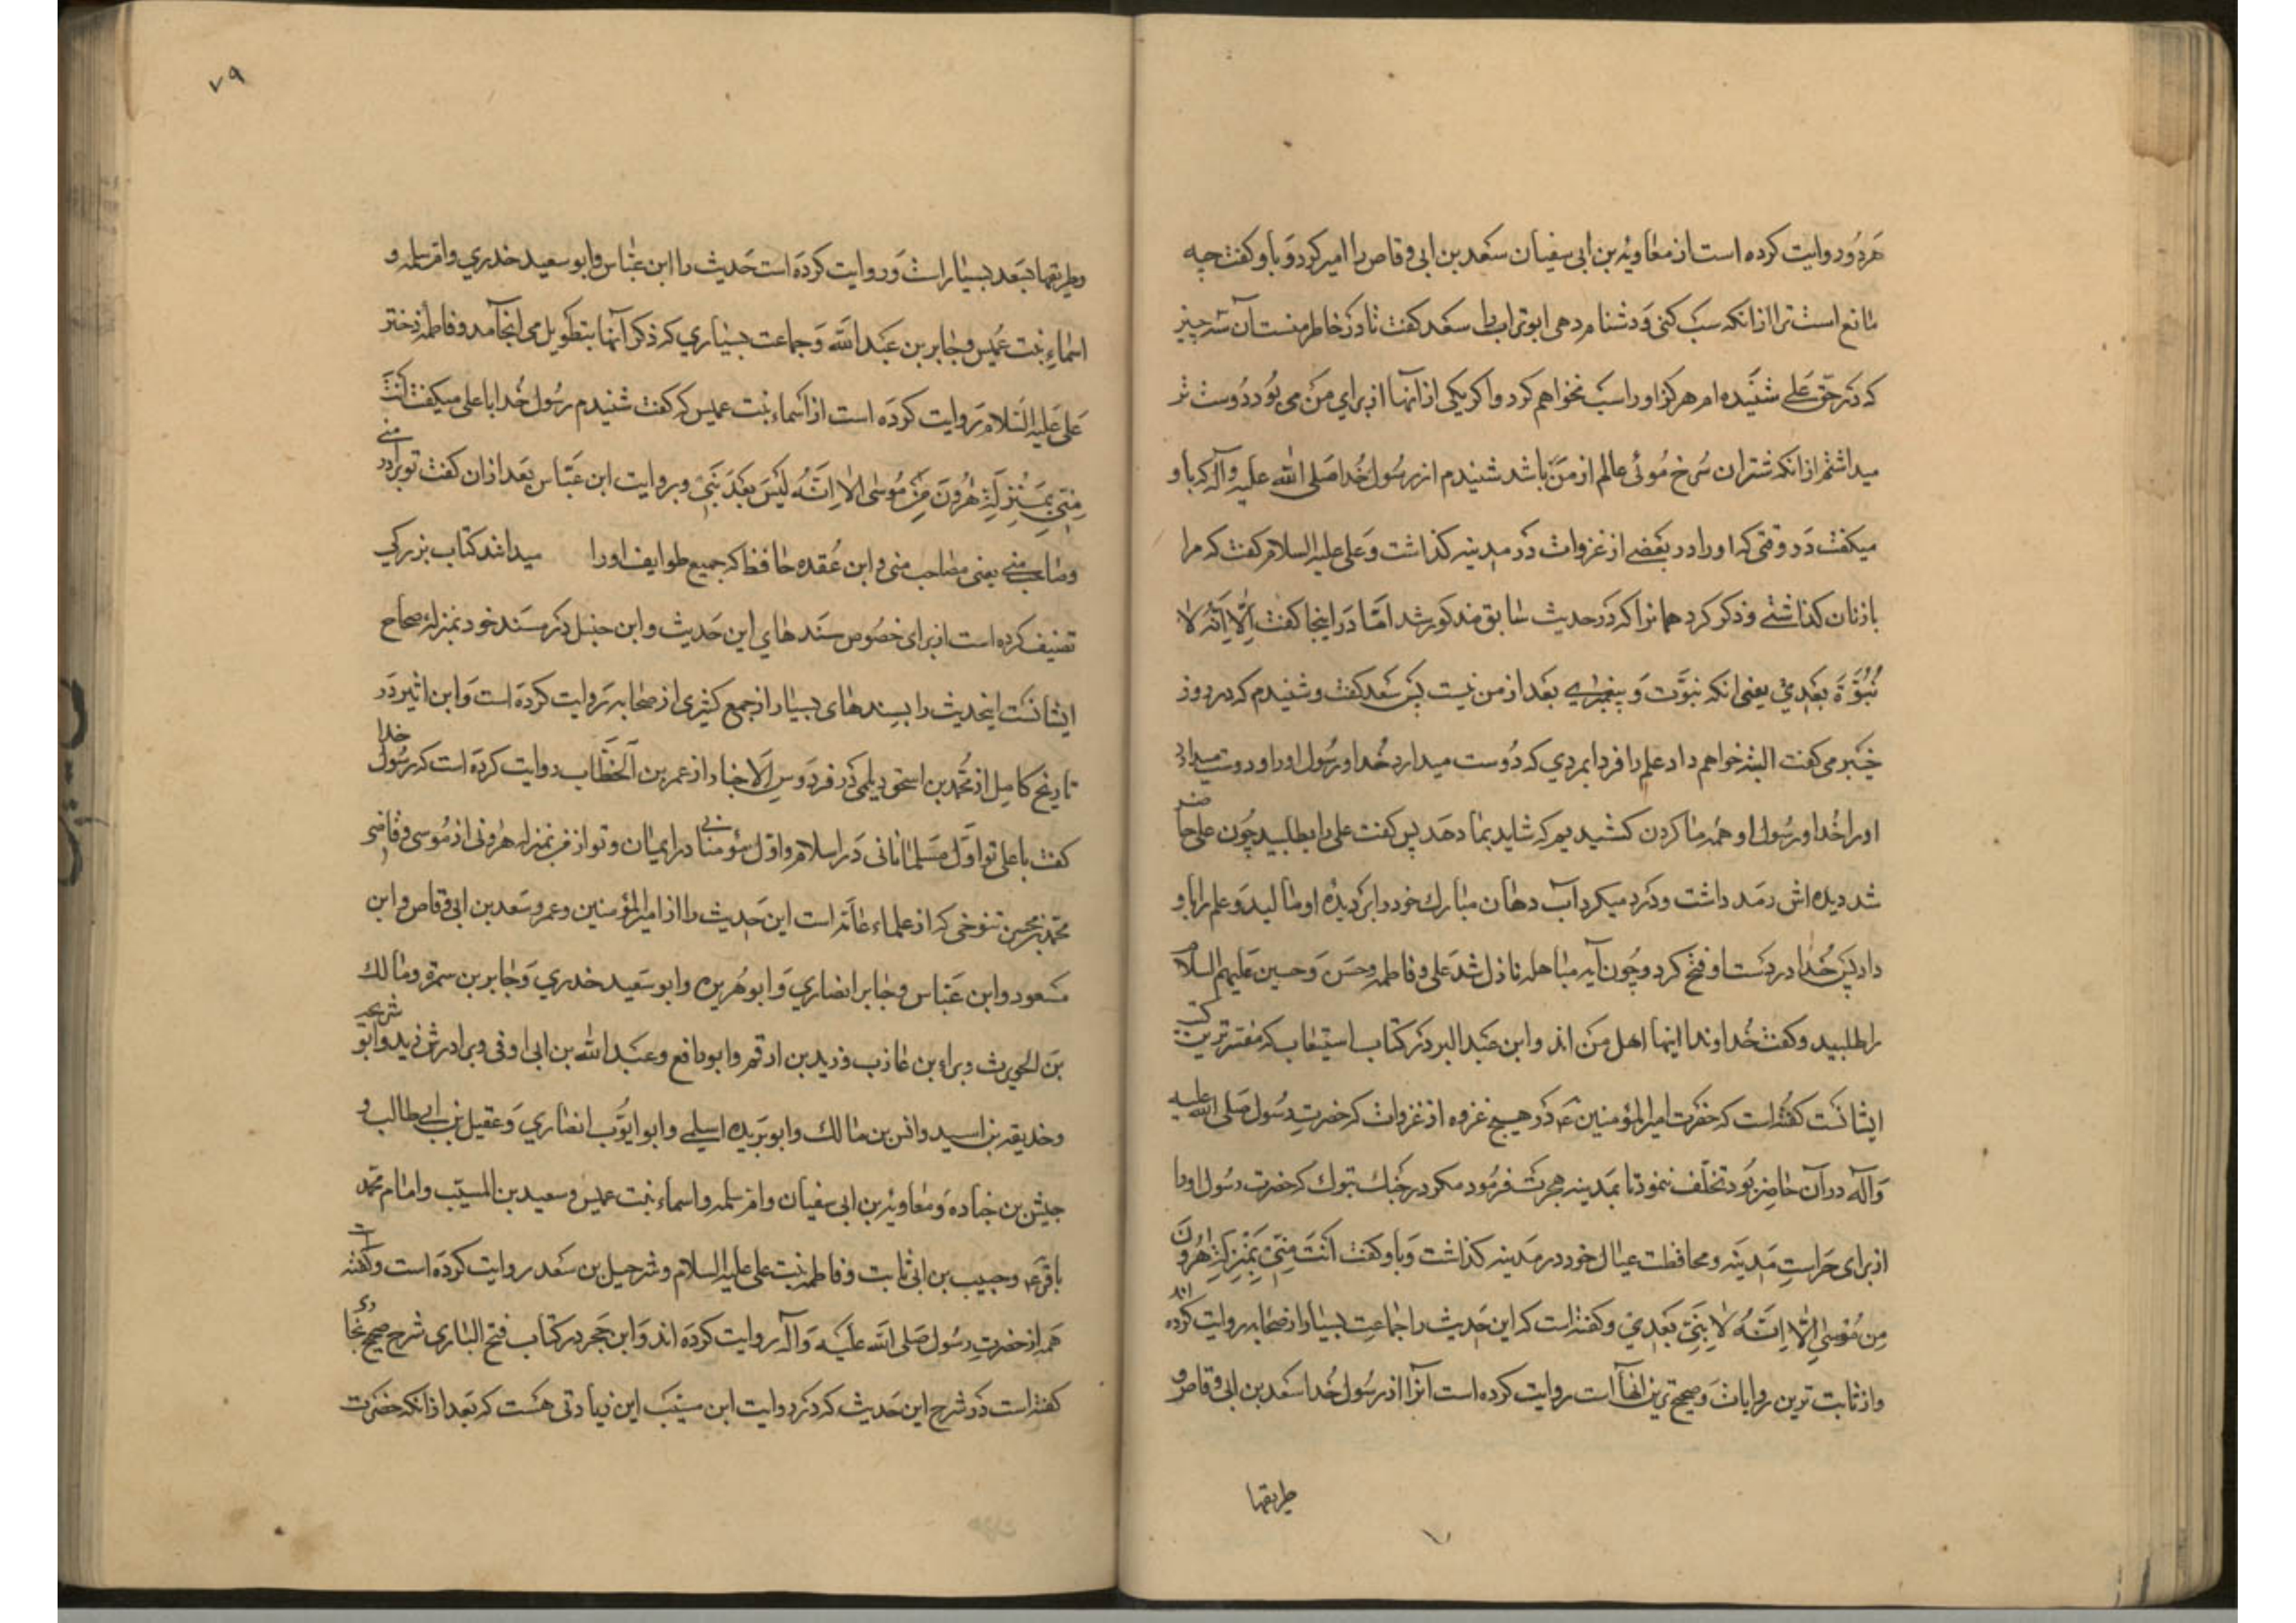 هردو روایت کرده است از معاویه بن ابی سفیان سعد بن ابی وقاص را امیر کرد و باو کفت چه
مانع است ترا از انکه سب کنی و دشنام دهی ابو تراب را سعد کفت تا در خاطر منست آن سه چیز
که در حق علی شنیده ام هرکز او را سب نخواهم کرد و اکر یکی از انها از برای من می بود دوست تر
میداشتم از انکه شتران سرخ موئی عالم از من باشد شنیدم از رسول خدا صلی الله علیه وآله که باو
میکفت در وقتی که او را در بعضے از غزوات در مدینه کذاشت و علی علیه السلام کفت که مرا
با زنان کذاشتے و ذکر کرد همانرا که در حدیث سابق مذکور شد اما در اینجا کفت الا انه لا
نبوة بعدی یعنی انکه نبوت و پیغمبرے بعد از من نیست پس سعد کفت و شنیدم که در روز
خیبر می کفت البته خواهم داد علم را فردا بمردی که دوست میدارد خدا و رسول او را و دوست میدارد
او را خدا و رسول او همه ما کردن کشیدیم که شاید بما دهد پس کفت علی را بطلبید چون علی حاضر
شد دیده اش رمد داشت و درد میکرد آب دهان مبارک خود را بر دیده او مالید و علم را باو
داد پس خدا در دست او فتح کرد و چون آیه مباهله نازل شد علی و فاطمه و حسن و حسین علیهم السلام
را طلبید و کفت خداوندا اینها اهل من اند و ابن عبد البر در کتاب استیعاب که معتبرترین کتب
ایشانست کفته است که حضرت امیر المؤمنین ع در هیچ غزوه از غزوات که حضرت رسول صلی الله علیه
وآله در آن حاضر بود تخلف ننمود تا بمدینه هجرت فرمود مکر در جنک تبوک که حضرت رسول او را
از برای حراست مدینه و محافظت عیال خود در مدینه کذاشت و باو کفت انت منی بمنزلة هرون
من موسی الا انه لا نبی بعدی و کفته است که این حدیث را جماعت بسیار از صحابه روایت کرده اند
و از ثابت ترین روایات و صحیح ترین انها است روایت کرده است انرا از رسول خدا سعد بن ابی وقاص و
طریقها
٧٩
و طریقها بسعد بسیار است و روایت کرده است حدیث را ابن عباس و ابو سعید خدری و ام سلمه و
اسماء بنت عمیس و جابر بن عبد الله و جماعت بسیاری که ذکر آنها بتطویل می انجامد و فاطمه دختر
علی علیه السلام روایت کرده است از اسماء بنت عمیس که کفت شنیدم رسول خدا با علی میکفت انت
منی بمنزلة هرون من موسی الا انه لیس بعد نبی و بروایت ابن عباس بعد از ان کفت تو برادر منے
و صاحب منے یعنی مصاحب منی و ابن عقده حافظ که جمیع طوایف او را میدانند کتاب بزرکی
تصنیف کرده است از برای خصوص سندهای این حدیث و ابن حنبل در مسند خود بمنزله صحاح
ایشانست اینحدیث را بسندهای بسیار از جمع کثیری از صحابه روایت کرده است و ابن اثیر در
تاریخ کامل از محمد بن اسحق دیلمی در فردوس الاخبار از عمر بن الخطاب روایت کرده است که رسول خدا
کفت با علی تو اول مسلمانانی در اسلام و اول مؤمنانی در ایمان و تو از من بمنزله هرونی از موسی و قاضی
محمد بن محسن تنوخی که از علماء عامه است این حدیث را از امیر المؤمنین و عمر و سعد بن ابی وقاص و ابن
مسعود و ابن عباس و جابر انصاری و ابو هریره و ابو سعید خدری و جابر بن سمره و مالک
بن الحویرث و براء بن عازب و زید بن ارقم و ابو رافع و عبد الله بن ابی اوفی و برادرش زید و ابو شریحه
و حذیفه بن اسید و انس بن مالک و ابو بریده اسلمے و ابو ایوب انصاری و عقیل بن ابی طالب و
جیش بن جناده و معاویه بن ابی سفیان و ام سلمه و اسماء بنت عمیس و سعید بن المسیب و امام محمد
باقر ع و حبیب بن ابی ثابت و فاطمه بنت علی علیه السلام و شرحیل بن سعد روایت کرده است و کفته است
همه از حضرت رسول صلی الله علیه وآله روایت کرده اند و ابن حجر در کتاب فتح الباری شرح صحیح بخاری
کفته است در شرح این حدیث که در روایت ابن مسیب این زیادتی هست که بعد از انکه حضرت